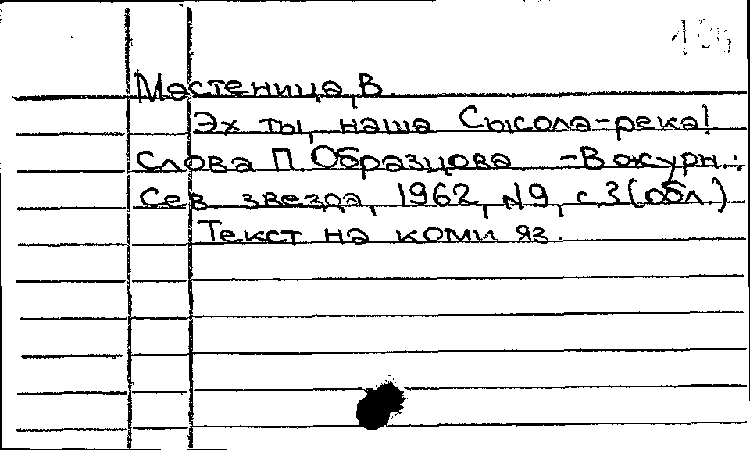 Мастеница, В.
Эх ты, наша Сысола-река!
Слова П. Образцова - В журн.:
Сев. звезда, 1962, №9, с.3 (обл.)
Текст на коми яз.